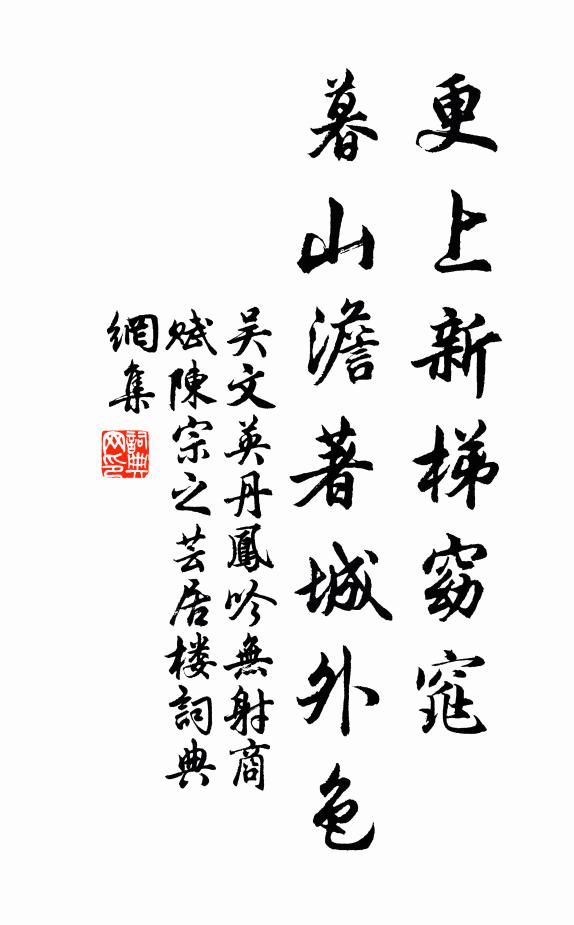 更上新梯窈窕
暮山澹著城外色
吴文英丹鳳吟無射商
赋陳宗之芸居楼詞典
網集
詞典网印